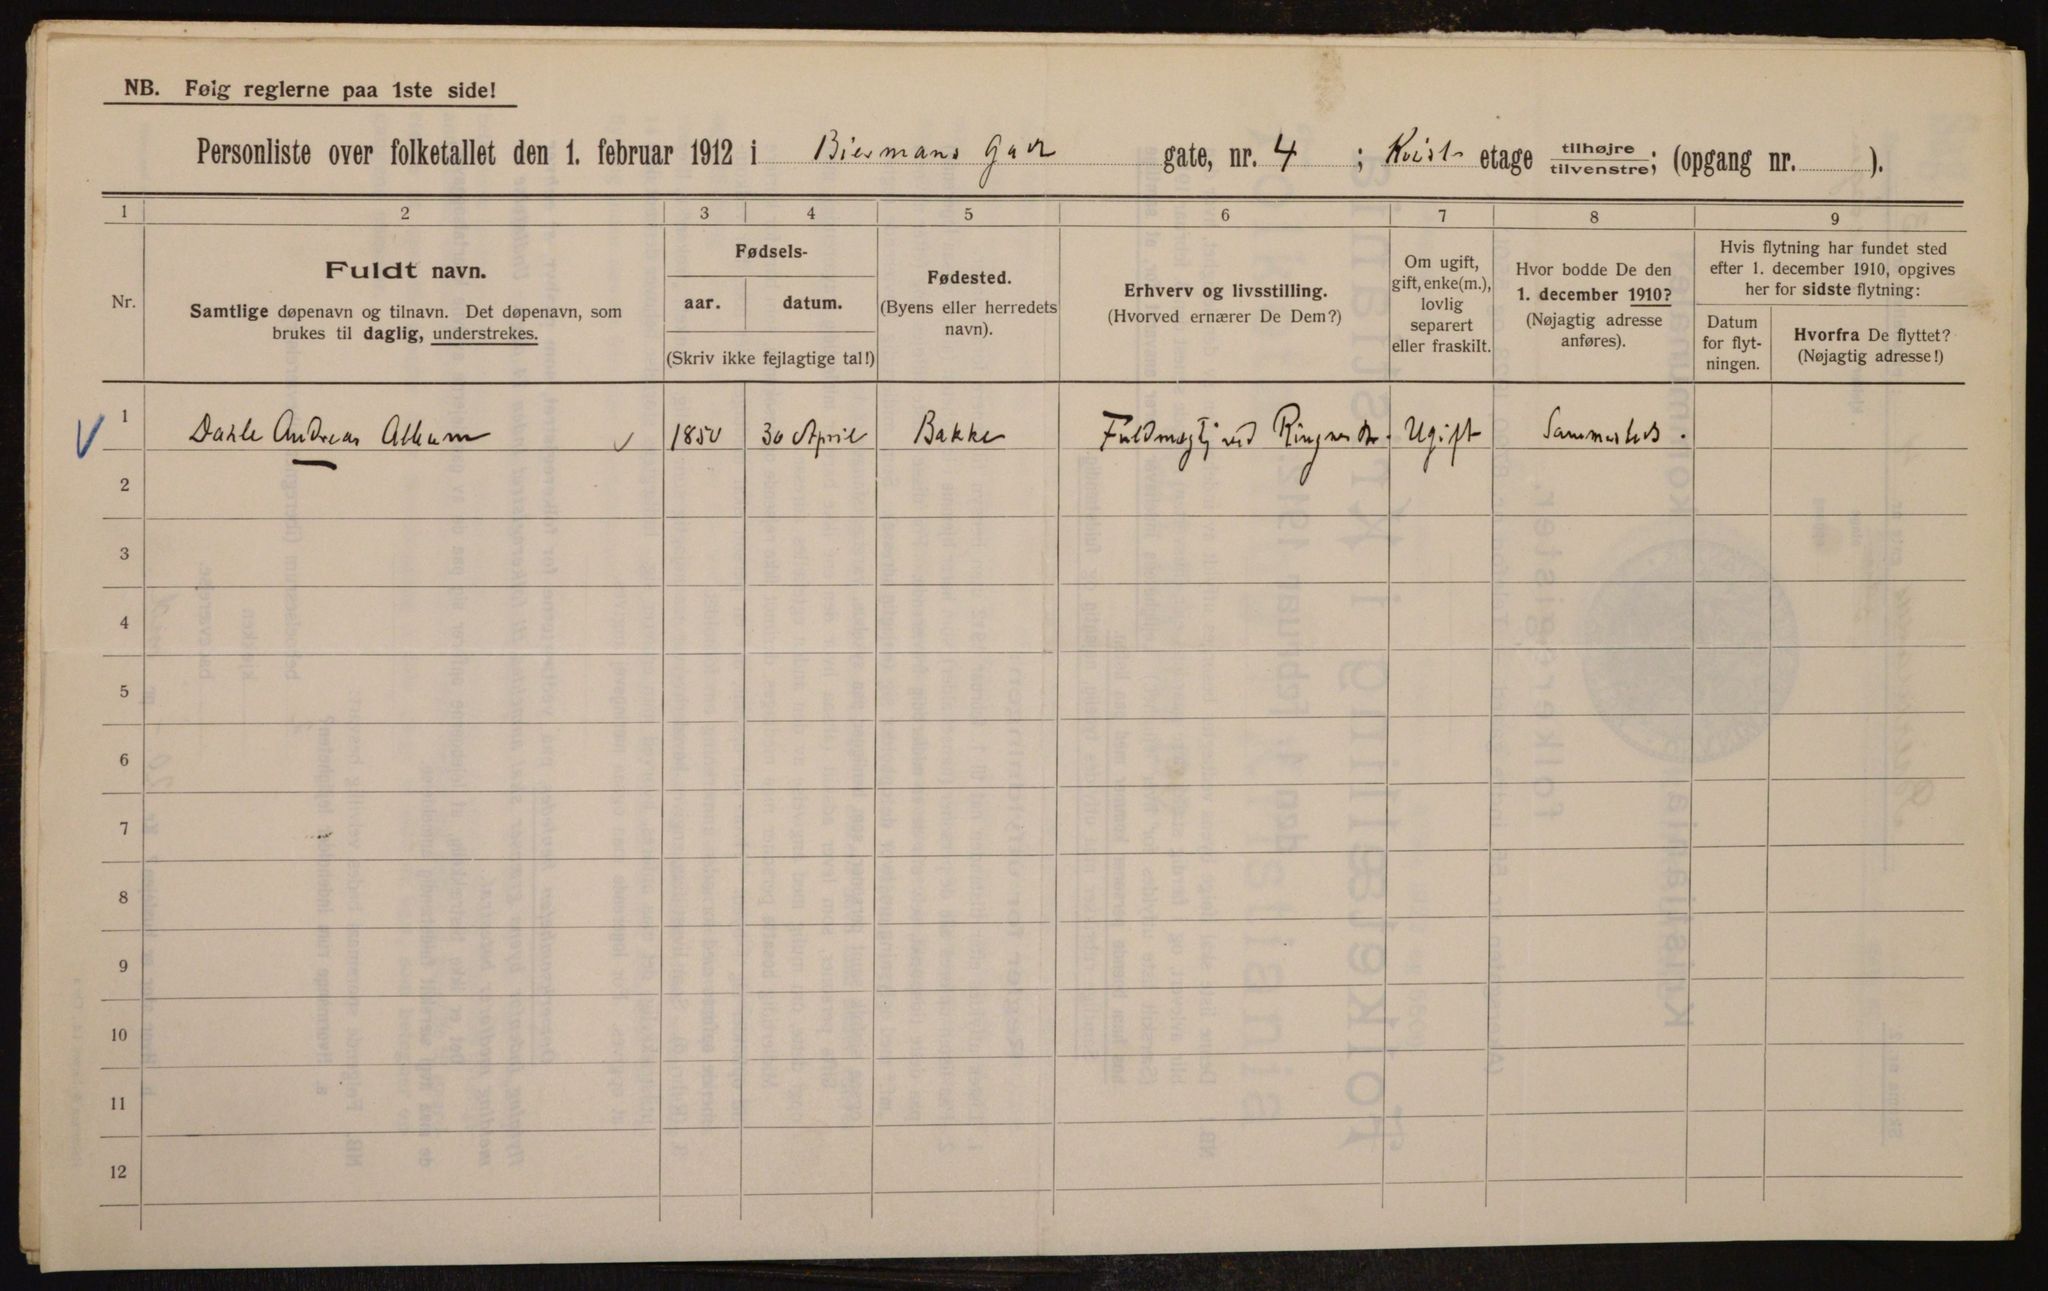 NB. Følg reglerne paa 1ste side!
Personliste over folketallet den 1. februar 1912 i Biermans Gade gate, nr. 4 ; Kvist etage tilhøjre/tilvenstre; (opgang nr. ).
1 2 3 4 5 6 7 8 9
Nr.
Fuldt navn.
Samtlige døpenavn og tilnavn. Det døpenavn, som
brukes til daglig, understrekes.
Fødsels-
aar. datum.
(Skriv ikke fejlagtige tal!)
Fødested.
(Byens eller herredets
navn).
Erhverv og livsstilling.
(Hvorved ernærer De Dem?)
Om ugift,
gift, enke(m.),
lovlig
separert
eller fraskilt.
Hvor bodde De den
1. december 1910?
(Nøjagtig adresse
anføres).
Hvis flytning har fundet sted
efter 1. december 1910, opgives
her for sidste flytning:
Datum
for flyt-
ningen.
Hvorfra De flyttet?
(Nøjagtig adresse!)
1 Dahle Andreas 1850 30 April Bakke Fuldmægtig ved Ringnes Ugift Sammesteds.
2
3
4
5
6
7
8
9
10
11
12